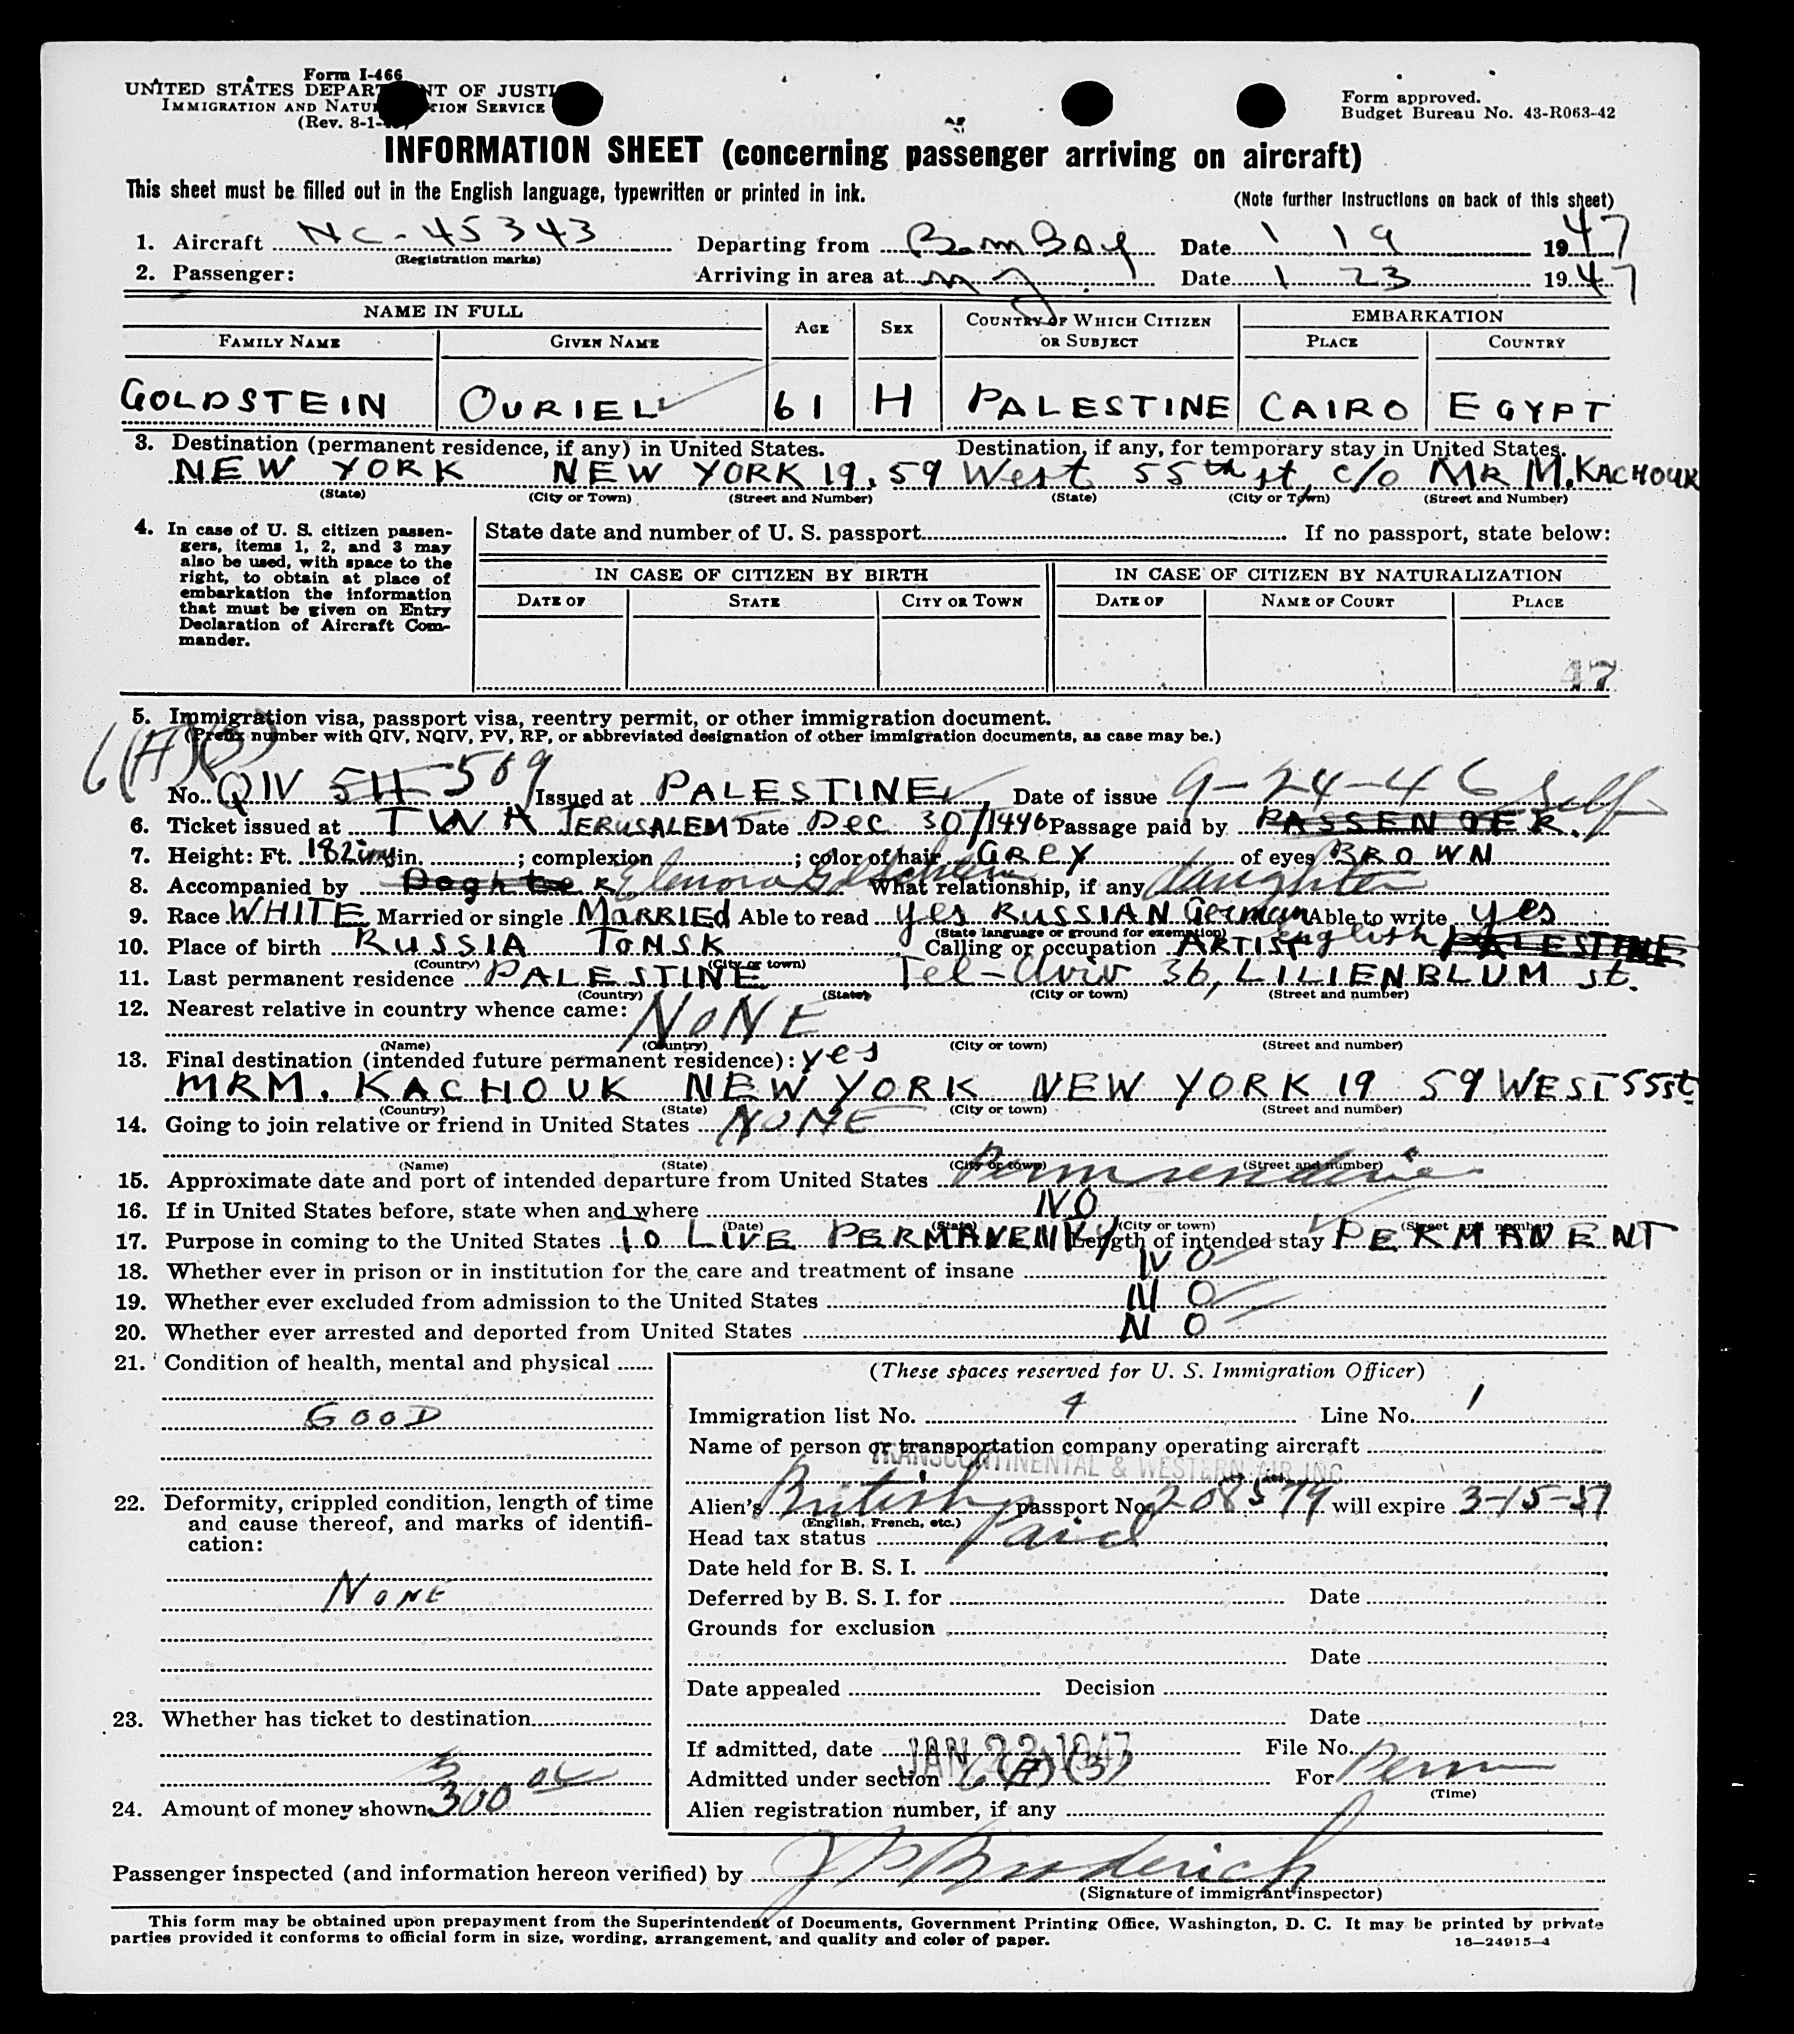 Form I-466
UNITED STATES DEPARTMENT OF JUSTICE
IMMIGRATION AND NATURALIZATION SERVICE
(Rev. 8-1-
Form approved.
Budget Bureau No. 43-R063-42
INFORMATION SHEET (concerning passenger arriving on aircraft)
This sheet must be filled out in the English language, typewritten or printed in ink.
(Note further instructions on back of this sheet)
1. Aircraft NC-45343 Departing from Bombay Date 1 19 1947
(Registration marks)
2. Passenger: Arriving in area at NY Date 1 23 1947
NAME IN FULL AGE SEX COUNTRY OF WHICH CITIZEN OR SUBJECT EMBARKATION
FAMILY NAME GIVEN NAME PLACE COUNTRY
GOLDSTEIN OURIEL 61 H PALESTINE CAIRO EGYPT
3. Destination (permanent residence, if any) in United States. Destination, if any, for temporary stay in United States.
NEW YORK NEW YORK 19, 59 West 55th st, c/o MR M. KACHOUK
(State) (City or Town) (Street and Number) (State) (City or Town) (Street and Number)
4. In case of U. S. citizen passengers, items 1, 2, and 3 may also be used, with space to the right, to obtain at place of embarkation the information that must be given on Entry Declaration of Aircraft Commander.
State date and number of U. S. passport If no passport, state below:
IN CASE OF CITIZEN BY BIRTH IN CASE OF CITIZEN BY NATURALIZATION
DATE OF STATE CITY OR TOWN DATE OF NAME OF COURT PLACE
47
5. Immigration visa, passport visa, reentry permit, or other immigration document.
(Prefix number with QIV, NQIV, PV, RP, or abbreviated designation of other immigration documents, as case may be.)
6(A)(3)
No. QIV 511 509 Issued at PALESTINE Date of issue 9-24-46
Self
6. Ticket issued at TWA JERUSALEM Date Dec 30/1946 Passage paid by PASSENGER.
7. Height: Ft. 182 in. ; complexion ; color of hair GREY of eyes BROWN
8. Accompanied by Doghter Elenora Goldstein What relationship, if any daughter
9. Race WHITE Married or single MARRIEd Able to read yes RUSSIAN German Able to write yes
(State language or ground for exemption)
10. Place of birth RUSSIA TONSK Calling or occupation ARTIST English PALESTINE
(Country) (City or town)
11. Last permanent residence PALESTINE Tel-Aviv 36, LILIENBLUM st.
(Country) (State) (City or town) (Street and number)
12. Nearest relative in country whence came: NONE
(Name) (Country) (City or town) (Street and number)
13. Final destination (intended future permanent residence): yes
MR M. KACHOUK NEW YORK NEW YORK 19 59 WEST 55st
(Country) (State) (City or town) (Street and number)
14. Going to join relative or friend in United States NONE
(Name) (State) (City or town) (Street and number)
15. Approximate date and port of intended departure from United States Perm
16. If in United States before, state when and where NO
(Date) (State) (City or town) (Street and number)
17. Purpose in coming to the United States TO LIVE PERMANENTLY Length of intended stay PERMANENT
18. Whether ever in prison or in institution for the care and treatment of insane NO
19. Whether ever excluded from admission to the United States NO
20. Whether ever arrested and deported from United States NO
21. Condition of health, mental and physical
GOOD
22. Deformity, crippled condition, length of time and cause thereof, and marks of identification:
NONE
23. Whether has ticket to destination
24. Amount of money shown 300 00
(These spaces reserved for U. S. Immigration Officer)
Immigration list No. 4 Line No. 1
Name of person or transportation company operating aircraft
TRANSCONTINENTAL & WESTERN AIR INC
Alien's British passport No. 208579 will expire 3-15-51
(English, French, etc.)
Head tax status Paid
Date held for B. S. I.
Deferred by B. S. I. for Date
Grounds for exclusion
Date
Date appealed Decision
Date
If admitted, date JAN 23 1947 File No.
Admitted under section 6(A)(3) For Perm
(Time)
Alien registration number, if any
Passenger inspected (and information hereon verified) by J P Broderick
(Signature of immigrant inspector)
This form may be obtained upon prepayment from the Superintendent of Documents, Government Printing Office, Washington, D. C. It may be printed by private
parties provided it conforms to official form in size, wording, arrangement, and quality and color of paper.
16—24915-4